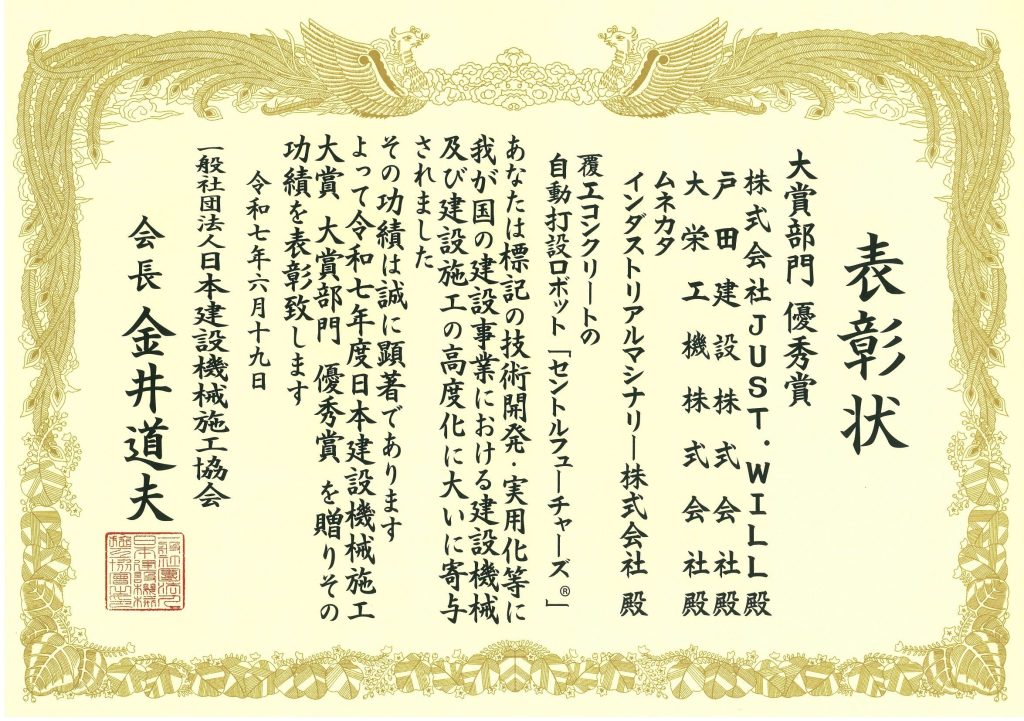 表彰状
大賞部門 優秀賞
株式会社JUST.WILL殿
戸田建設株式会社殿
大栄工機株式会社殿
ムネカタ
インダストリアルマシナリー株式会社殿
覆工コンクリートの
自動打設ロボット「セントルフューチャーズ®」
あなたは標記の技術開発・実用化等に
我が国の建設事業における建設機械
及び建設施工の高度化に大いに寄与
されました
その功績は誠に顕著であります
よって令和七年度日本建設機械施工
大賞 大賞部門 優秀賞 を贈りその
功績を表彰致します
令和七年六月十九日
一般社団法人日本建設機械施工協会
会長 金井道夫